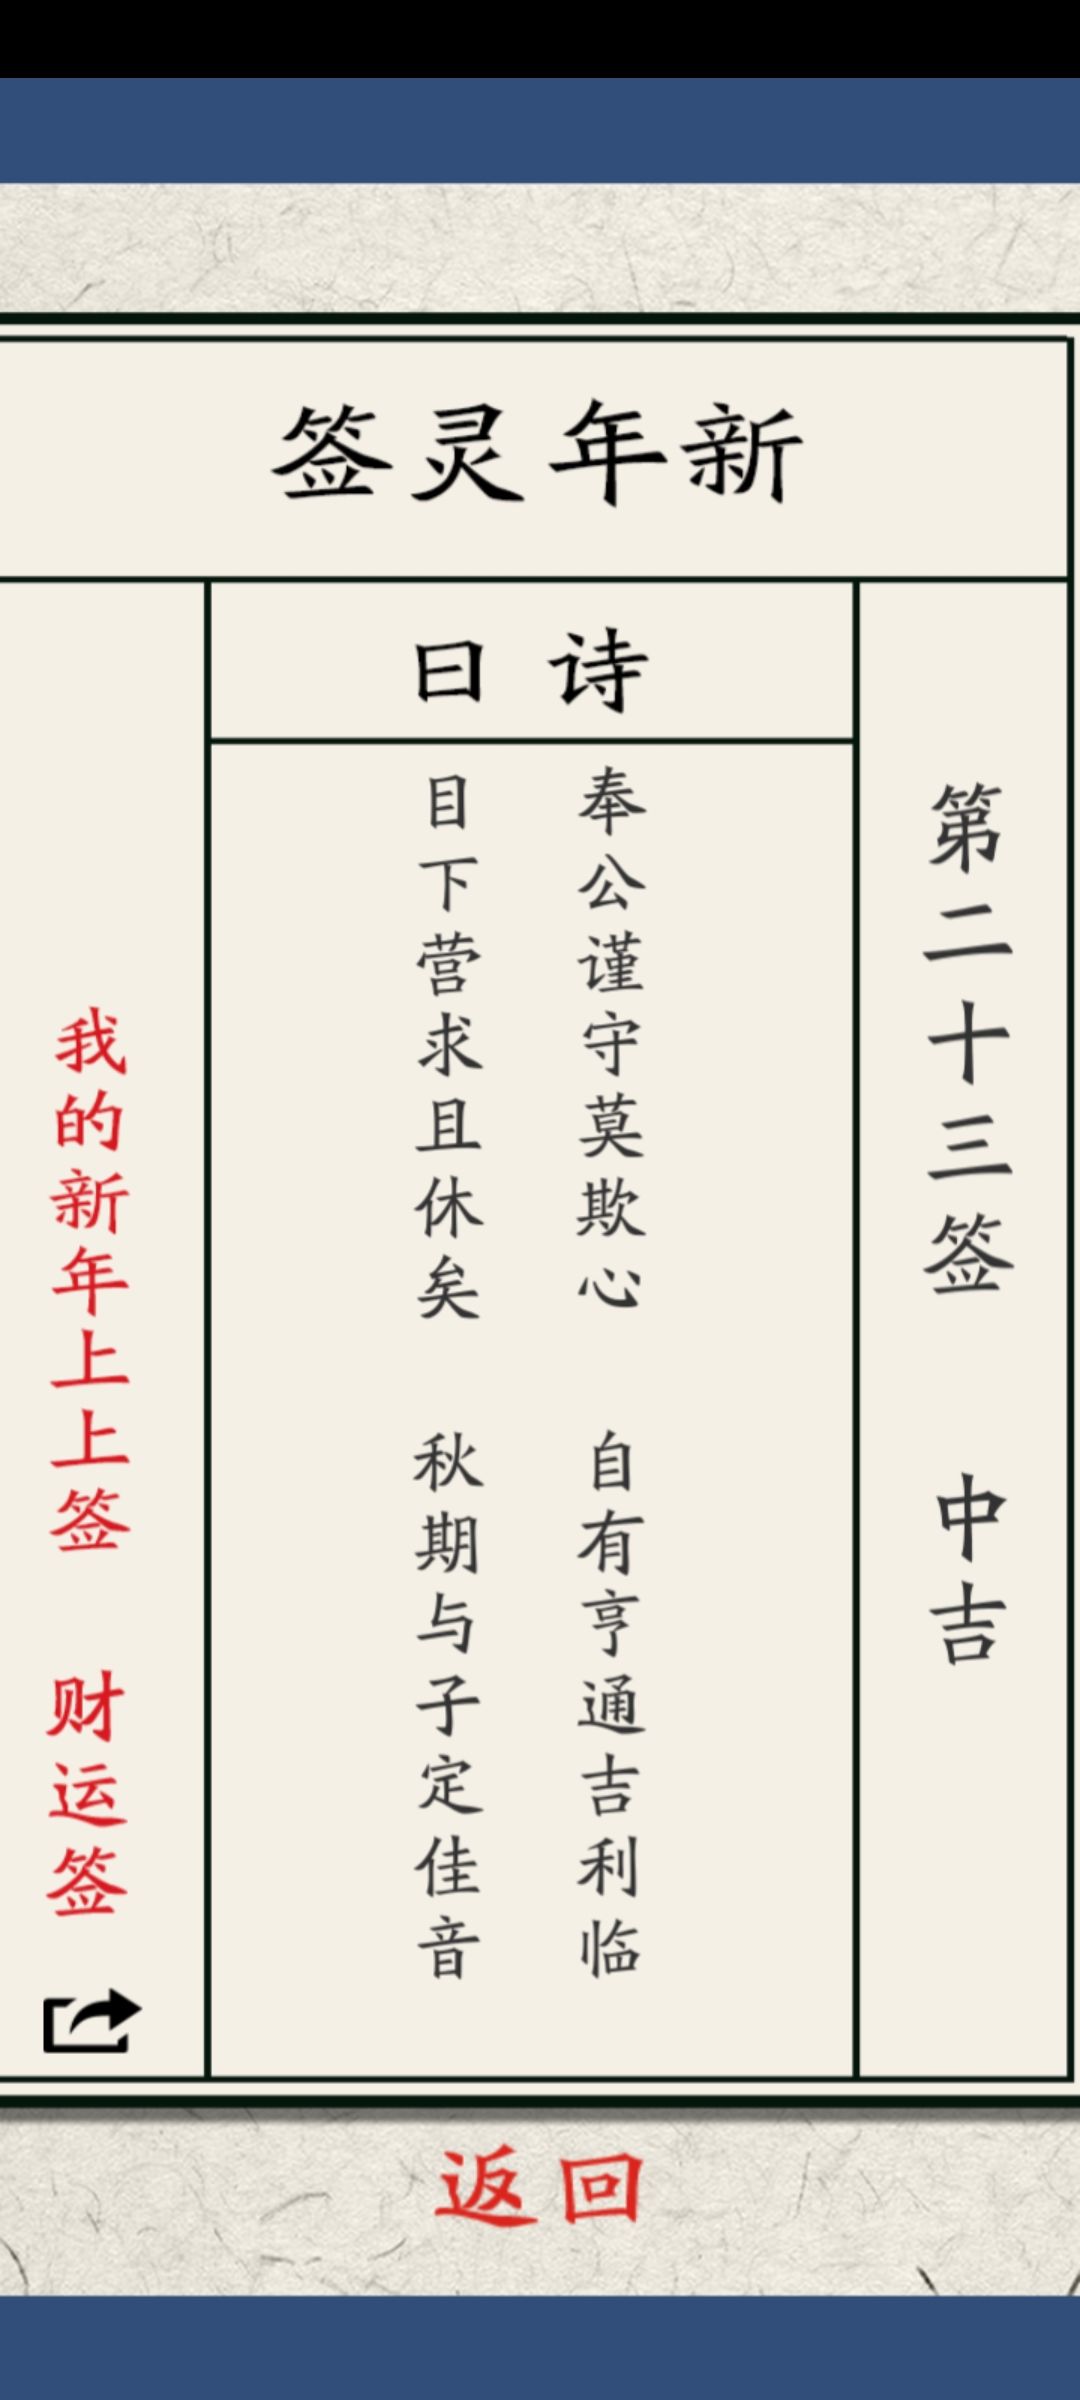 新年灵签
第二十三签 中吉
诗曰
奉公谨守莫欺心 自有亨通吉利临
目下营求且休矣 秋期与子定佳音
我的新年上上签 财运签
返回